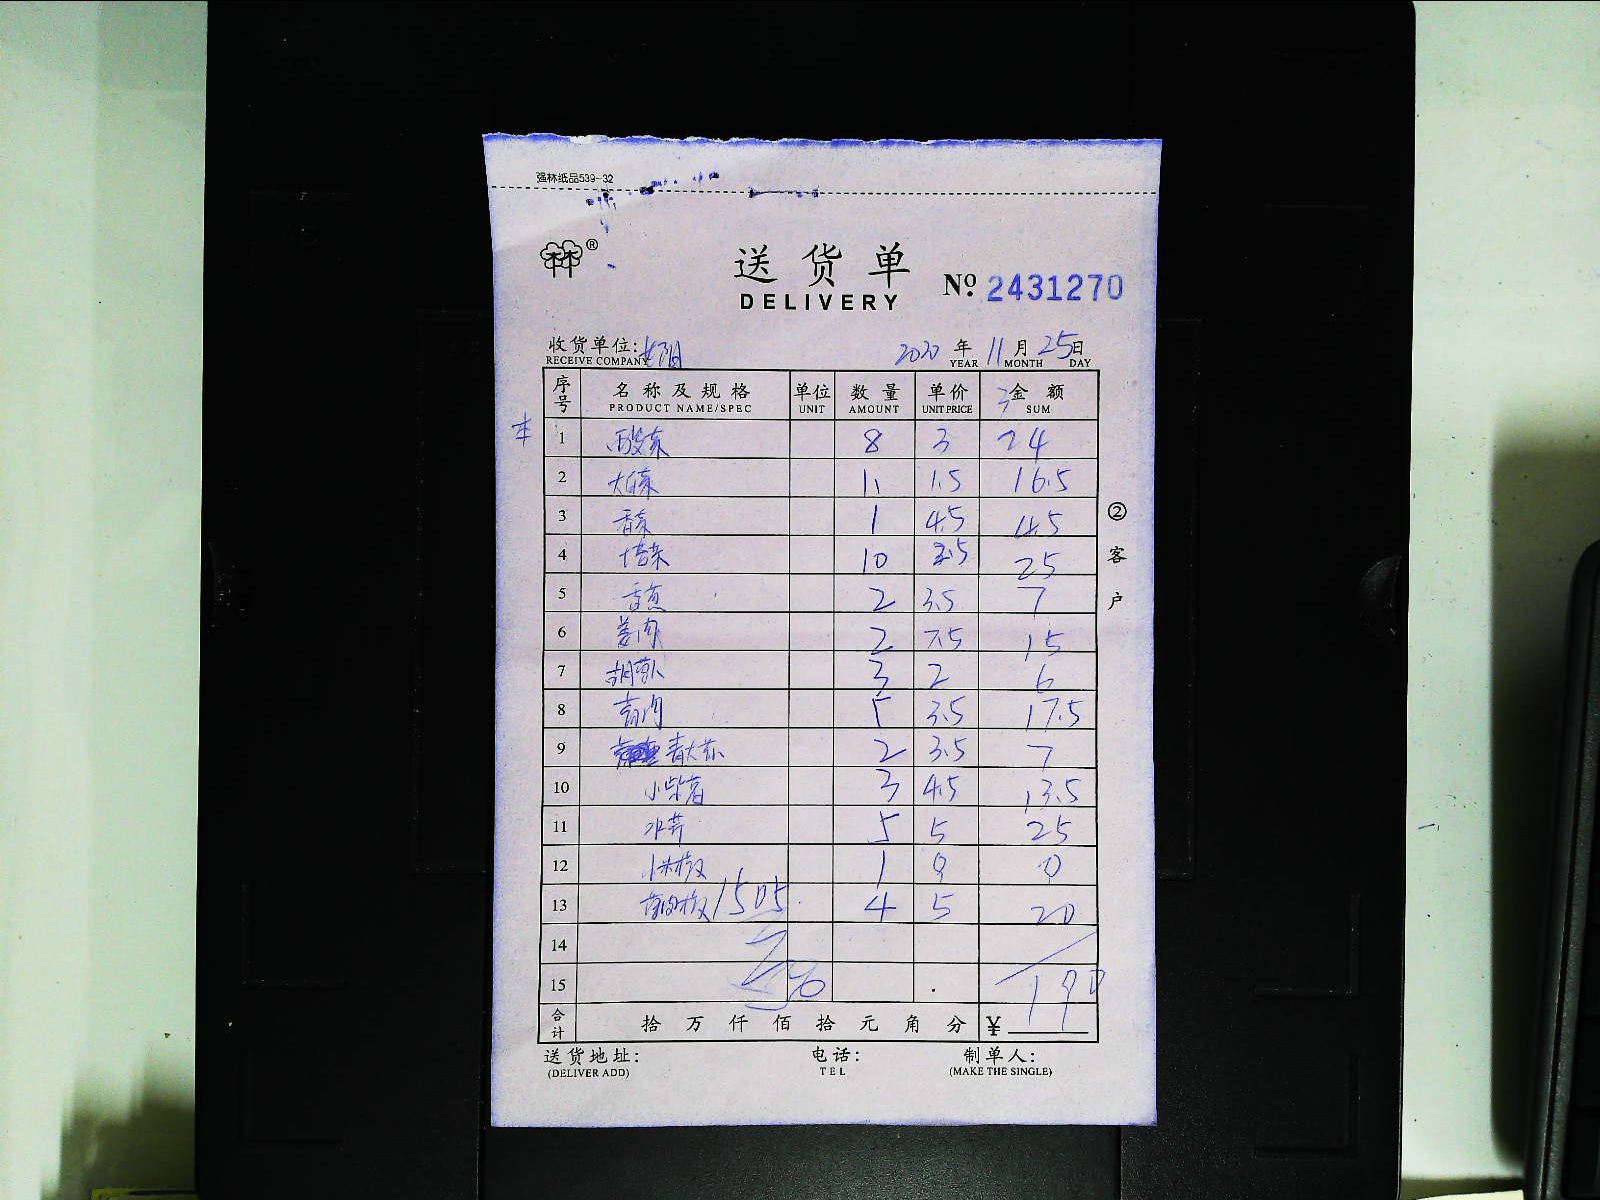 强林纸品539-32
®
送货单
DELIVERY
№ 2431270
收货单位: 2020 年 11 月 25 日
RECEIVE COMPANY YEAR MONTH DAY
序号 名称及规格 单位 数量 单价 金额
PRODUCT NAME/SPEC UNIT AMOUNT UNIT PRICE SUM
1 8 3 24
2 11 1.5 16.5
3 香菜 1 4.5 4.5
4 塔菜 10 2.5 25
5 2 3.5 7
6 姜肉 2 7.5 15
7 胡萝卜 3 2 6
8 5 3.5 17.5
9 青大蒜 2 3.5 7
10 3 4.5 13.5
11 水芹 5 5 25
12 小米椒 1 0 0
13 1505 4 5 20
14
15 190
合计 拾 万 仟 佰 拾 元 角 分 ¥
送货地址: 电话: 制单人:
(DELIVER ADD) TEL (MAKE THE SINGLE)
② 客户